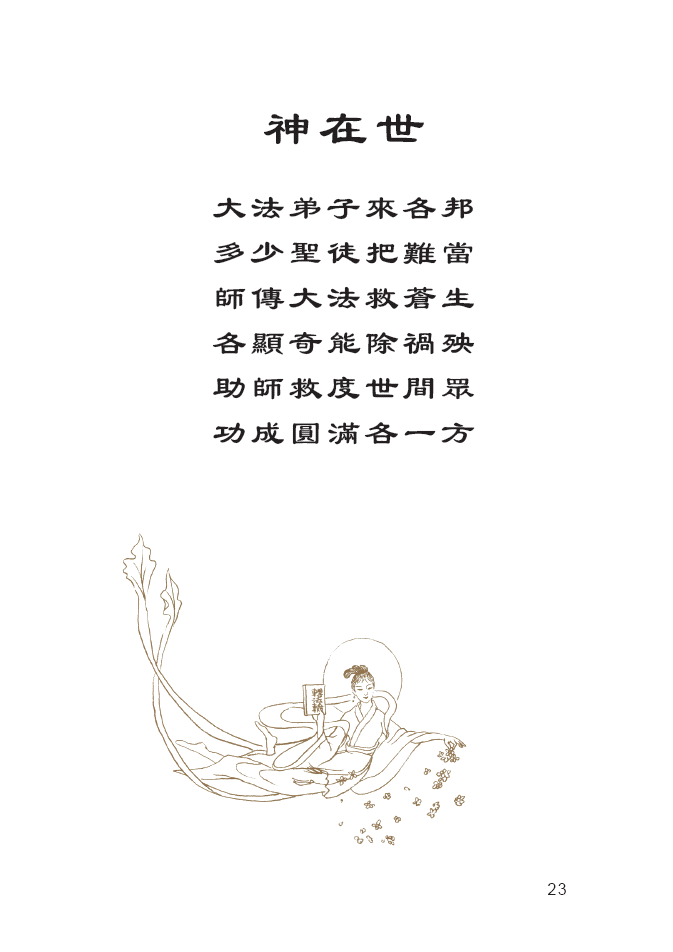 神在世
大法弟子來各邦
多少聖徒把難當
師傳大法救蒼生
各顯奇能除禍殃
助師救度世間眾
功成圓滿各一方
轉法輪
23